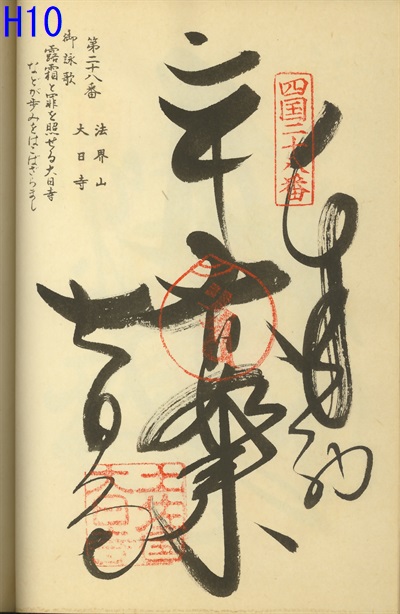 H10
奉納
四国二十八番
大日寺
第二十八番 法界山
大日寺
御詠歌
露霜と罪を照せる大日寺
などか歩みをはこばざらまし